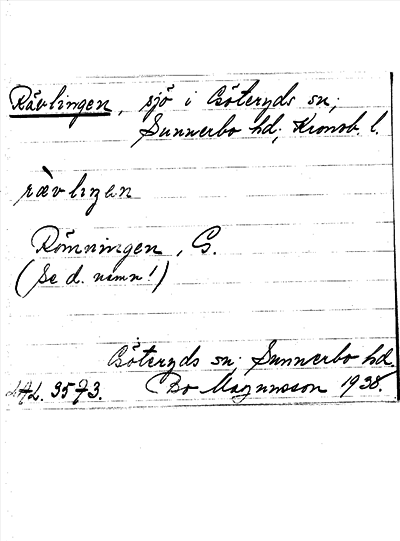 Rävlingen, sjö i Göteryds sn;
Sunnerbo hd; Kronob. l.
rævliŋən
Römningen, G.
(Se d. namn!)
Göteryds sn; Sunnerbo hd.
LAL. 3573. Bo Magnusson 1938.